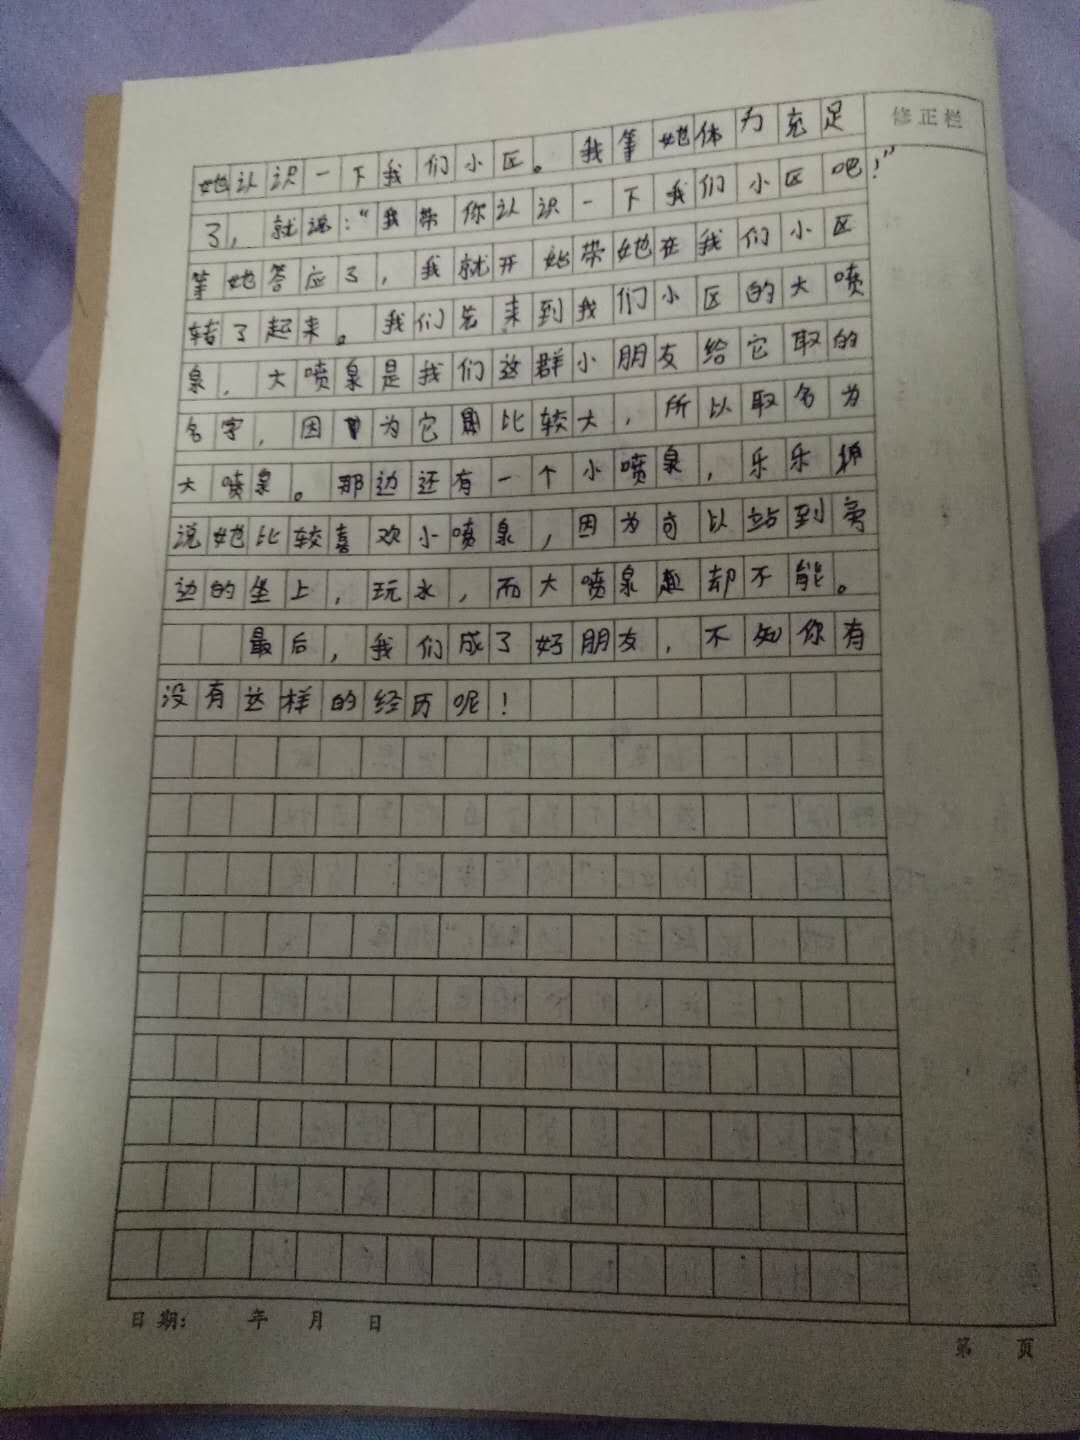 修正栏
她认识一下我们小区。我等她体力充足
了，就说：“我带你认识一下我们小区吧！”
等她答应了，我就开始带她在我们小区
转了起来。我们先来到我们小区的大喷
泉，大喷泉是我们这群小朋友给它取的
名字，因为它比较大，所以取名为
大喷泉。那边还有一个小喷泉，乐乐
说她比较喜欢小喷泉，因为可以站到旁
边的坐上，玩水，而大喷泉却不能。
最后，我们成了好朋友，不知你有
没有这样的经历呢！
日期： 年 月 日
第 页